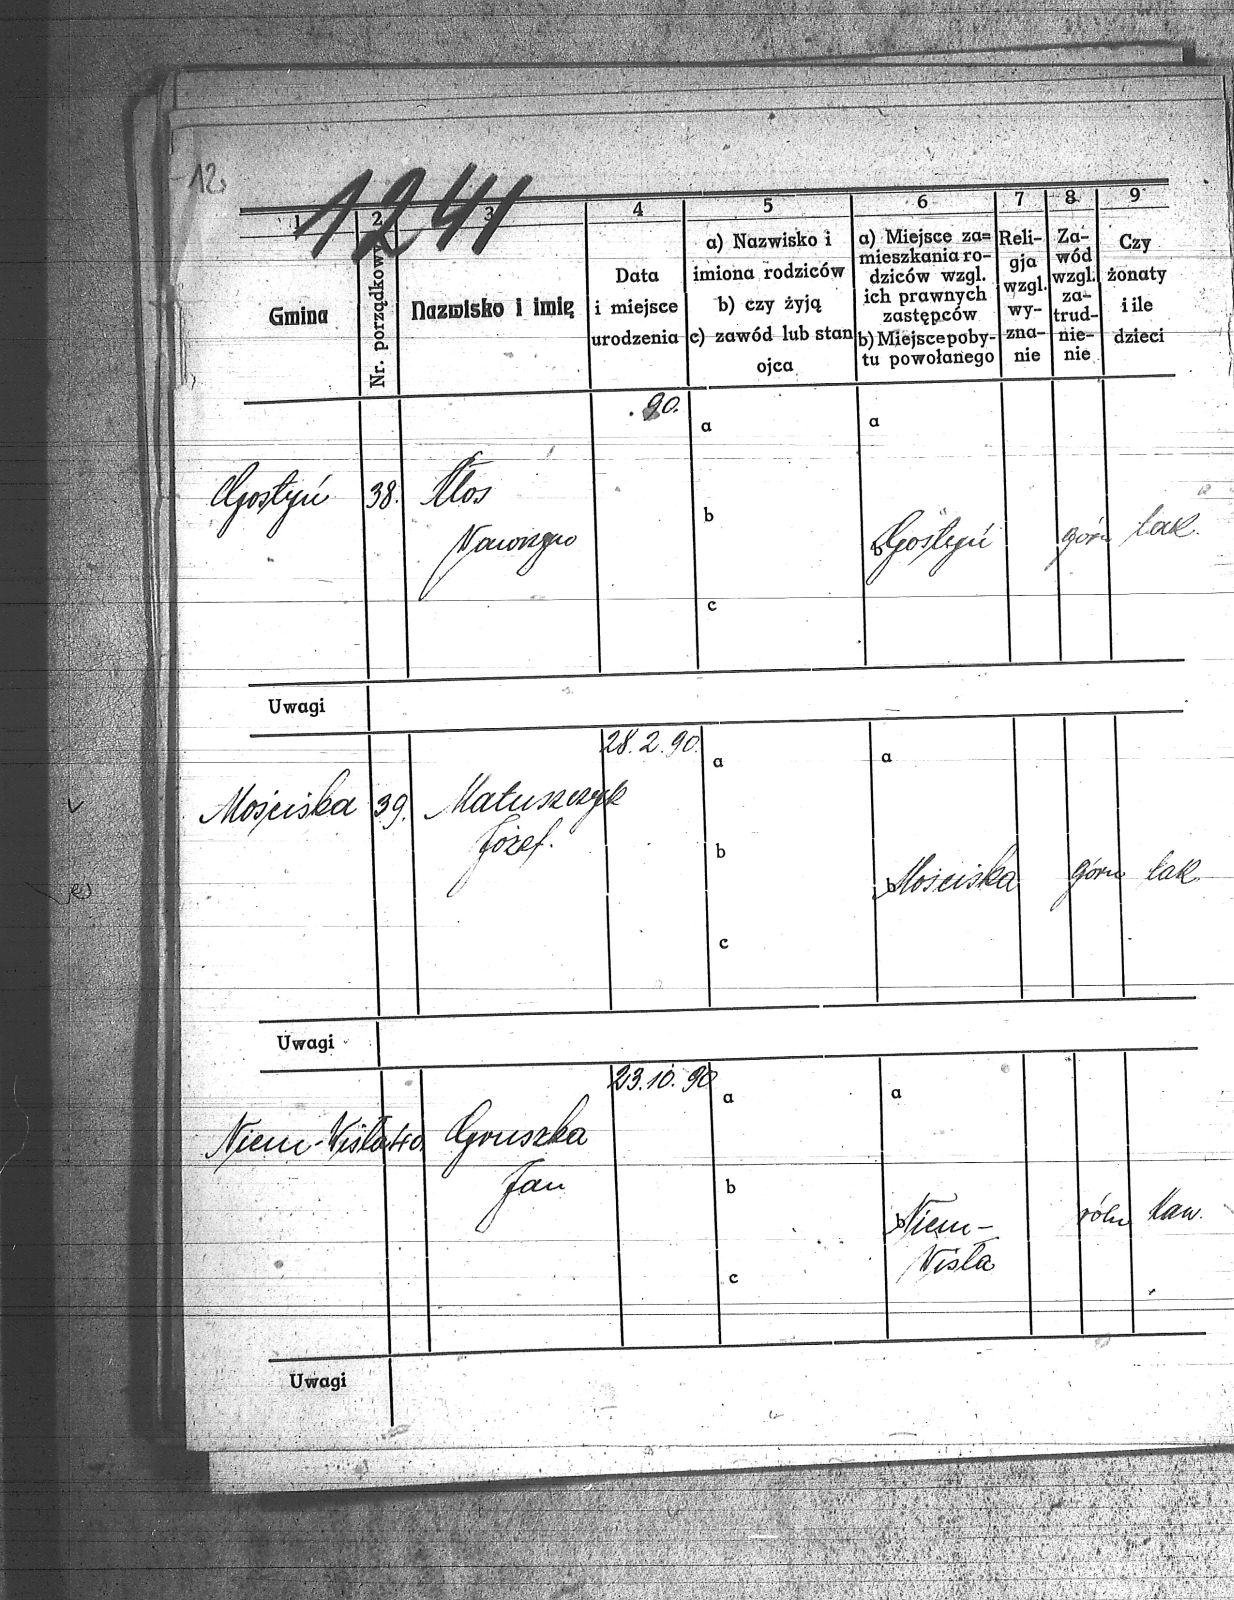 12.
1241
1 2 3 4 5 6 7 8 9
Gmina
Nr. porządkowy
Nazwisko i imię
Data
i miejsce
urodzenia
a) Nazwisko i
imiona rodziców
b) czy żyją
c) zawód lub stan
ojca
a) Miejsce za=
mieszkania ro-
dziców wzgl.
ich prawnych
zastępców
b) Miejsce poby-
tu powołanego
Reli-
gja
wzgl.
wy-
zna-
nie
Za-
wód
wzgl.
za-
trud-
nie-
nie
Czy
żonaty
i ile
dzieci
.90.
a a
Gostyń 38. Kłos
Wawrzyn
b
b Gostyń górn tak.
c
Uwagi
28.2.90.
a a
Mościska 39. Matuszczyk
Józef.
b
b Mościska górn tak
c
Uwagi
23.10.90
a a
Niem-Wisła 40. Gruszka
Jan
b
b Niem-
Wisła
róln Kaw.
c
Uwagi